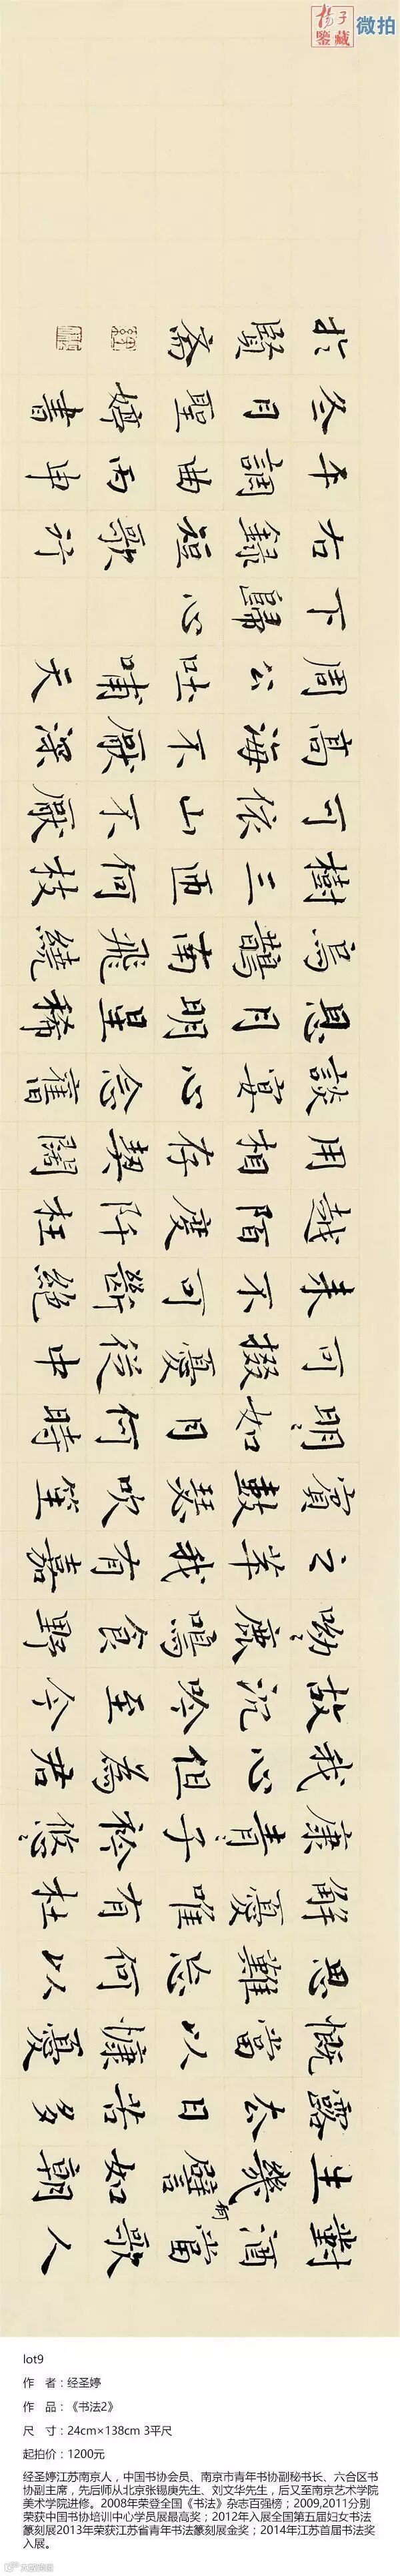 揚子
鑒藏
微拍
對酒當歌人
生幾何譬如朝
露去日苦多
慨當以慷憂
思難忘何以
解憂唯有杜
康青々子衿悠々
我心但為君
故沉吟至今
呦々鹿鳴食野
之苹我有嘉
賓鼓瑟吹笙
明々如月何時
可掇憂從中
来不可斷絕
越陌度阡枉
用相存契闊
談宴心念舊
恩月明星稀
烏鵲南飛繞
樹三匝何枝
可依山不厭
高海不厭深
周公吐哺天
下歸心
右錄短歌行
平調曲丙申
冬月聖婷書
於賢齋
lot9
作 者：经圣婷
作 品：《书法2》
尺 寸：24cm×138cm 3平尺
起拍价：1200元
经圣婷江苏南京人，中国书协会员、南京市青年书协副秘书长、六合区书
协副主席，先后师从北京张锡庚先生、刘文华先生，后又至南京艺术学院
美术学院进修。2008年荣登全国《书法》杂志百强榜；2009,2011分别
荣获中国书协培训中心学员展最高奖；2012年入展全国第五届妇女书法
篆刻展2013年荣获江苏省青年书法篆刻展金奖；2014年江苏首届书法奖
入展。